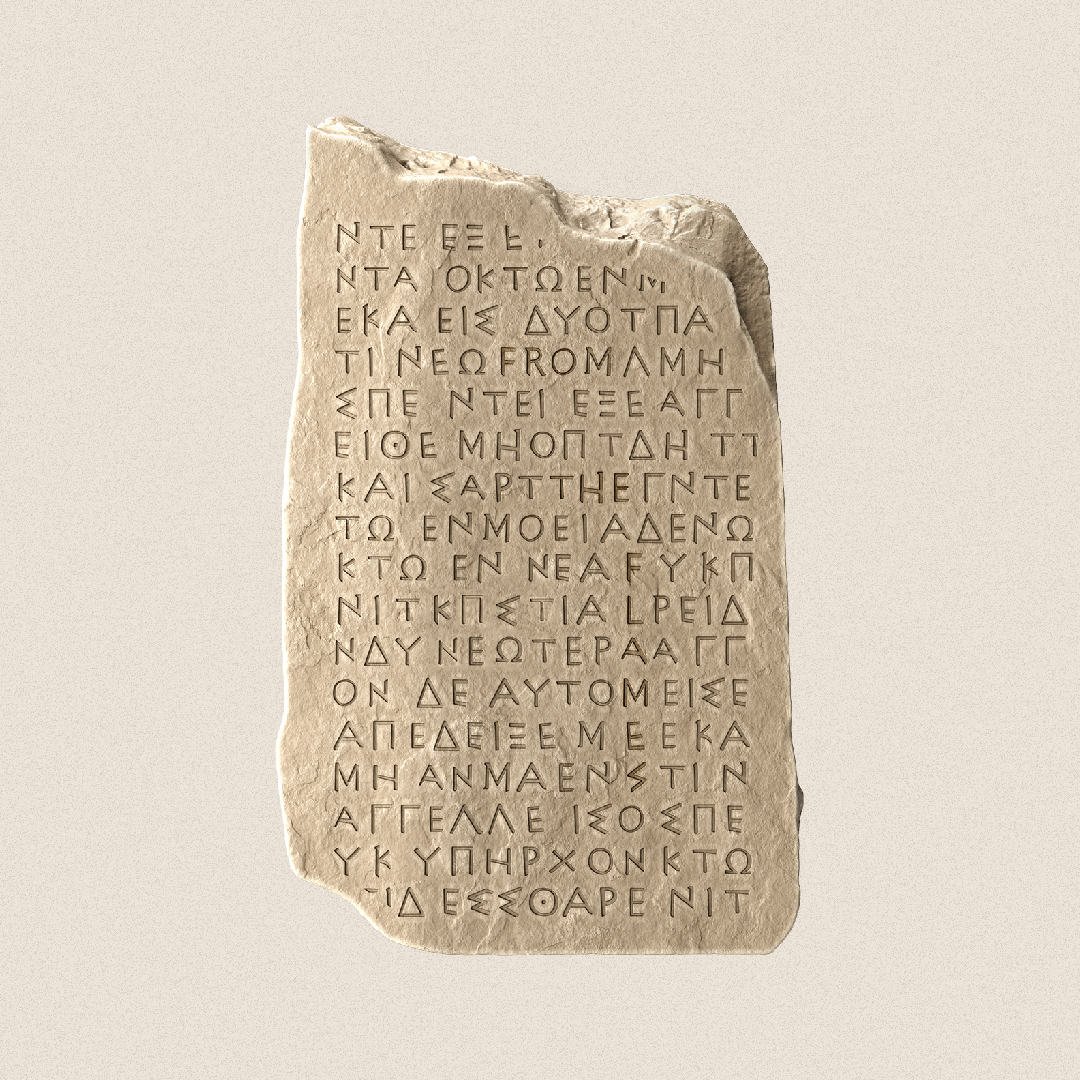 ΝΤΕ ΕΞ
ΝΤΑ ΟΚΤΩΕΝ
ΕΚΑ ΕΙΣ ΔΥΟΤΠΑ
ΤΙ ΝΕΩFROMΛΜΗ
ΣΠΕ ΝΤΕΙ ΕΞΕΑΓΓ
ΕΙΘΕ ΜΗΟΠΤΔΗ ΤΤ
ΚΑΙ ΣΑΡΤΤΗΕΓΝΤΕ
ΤΩ ΕΝΜΟΕΙΑΔΕΝΩ
ΚΤΩ ΕΝ ΝΕΑFΥΚΠ
ΝΙΤΚΠΣΤΙΑ LΡΕΙΔ
ΝΔΥ ΝΕΩΤΕΡΑΑΓΓ
ΟΝ ΔΕ ΑΥΤΟΜΕΙΣΕ
ΑΠΕΔΕΙΞΕ ΜΕΕΚΑ
ΜΗ ΑΝΜΑΕΝSΤΙΝ
ΑΓΓΕΛΛΕ ΙΣΟΣΠΕ
ΥΚ ΥΠΗΡΧΟΝΚΤΩ
ΙΔ ΕΣΣΘΑΡΕ ΝΙΤ